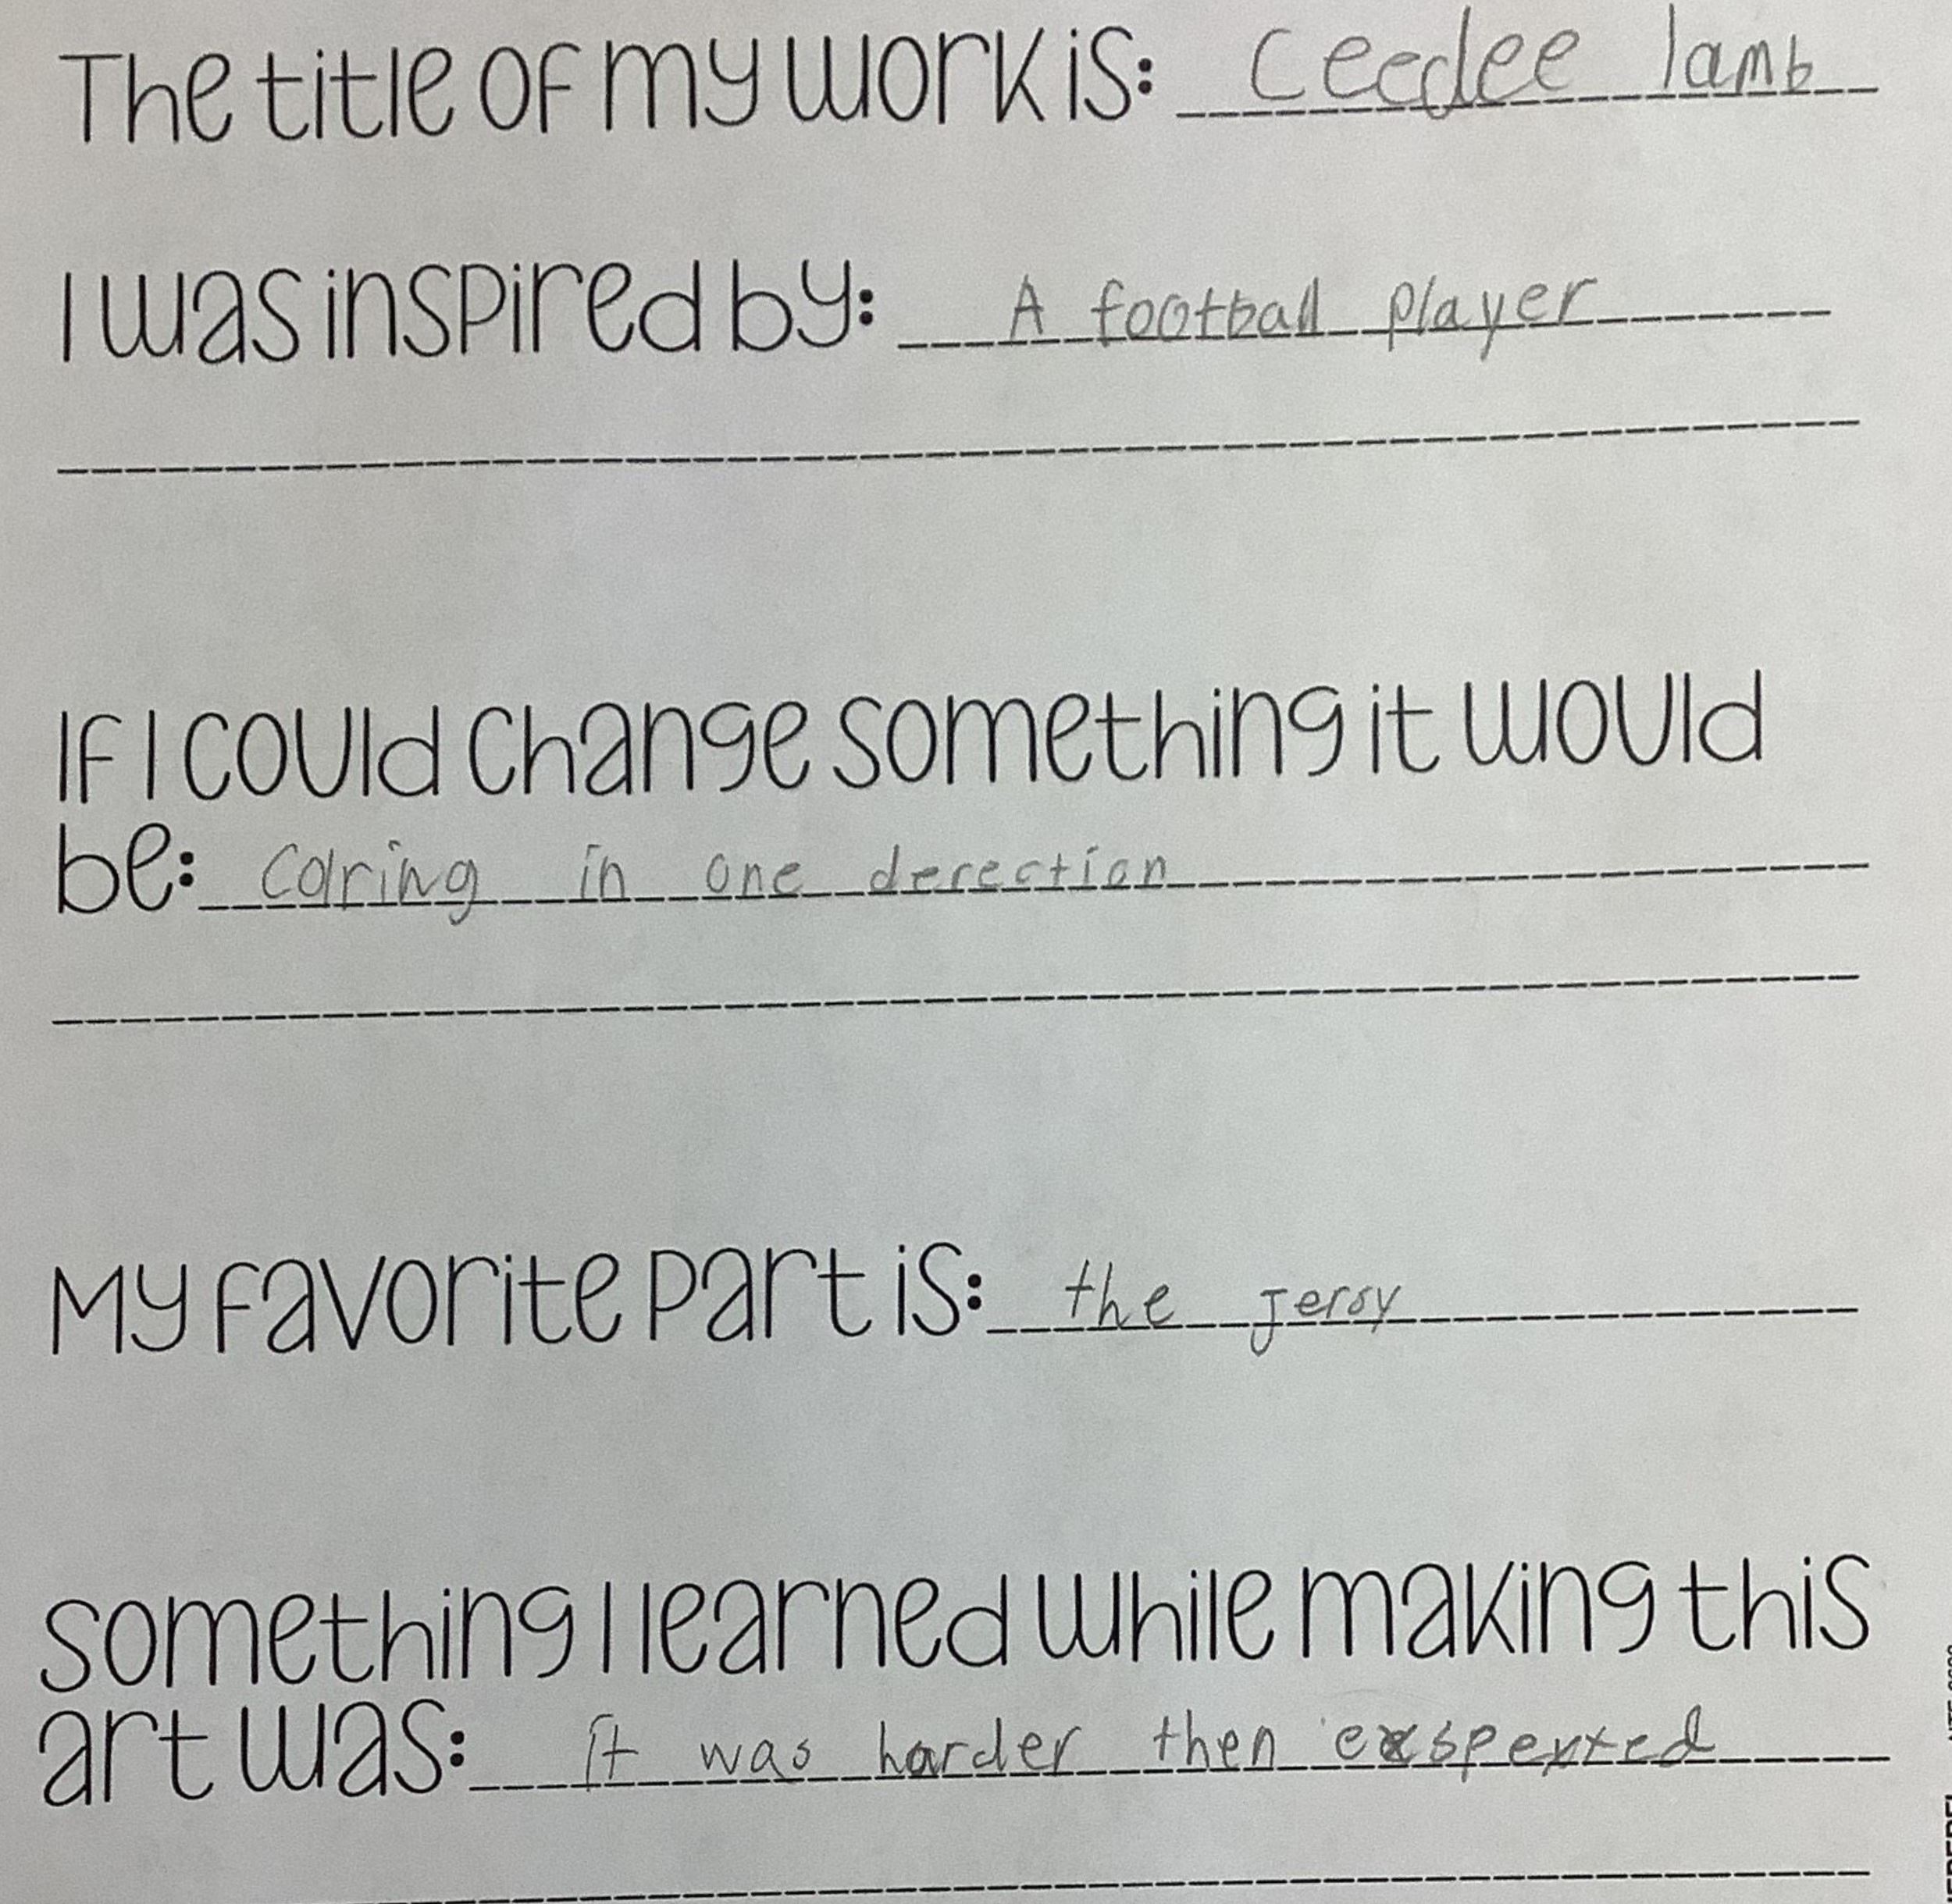 The title of my work is: Ceedee lamb
I was inspired by: A football player
If I could change something it would
be: Colring in one derection
My favorite part is: the Jersy
Something I learned while making this
art was: it was harder then exspexted